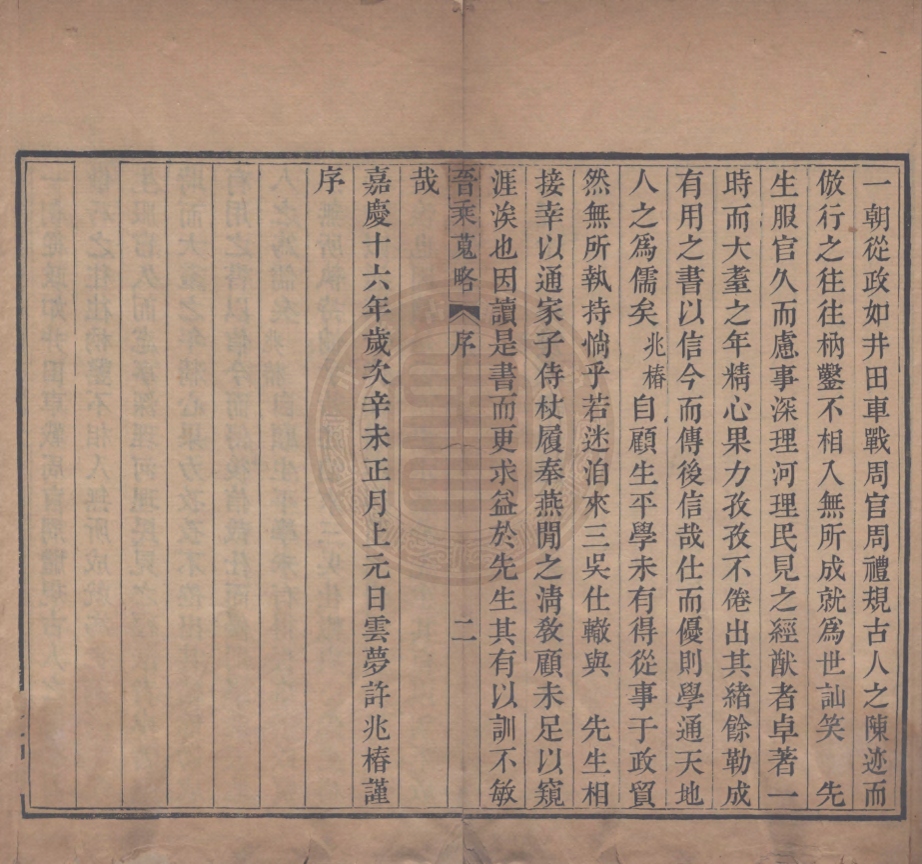 一朝從政如井田車戰周官周禮規古人之陳迹而
倣行之往往枘鑿不相入無所成就為世訕笑　先
生服官久而慮事深理河理民見之經猷者卓著一
時而大耋之年精心果力孜孜不倦出其緒餘勒成
有用之書以信今而傳後信哉仕而優則學通天地
人之為儒矣兆椿自顧生平學未有得從事于政貿
然無所執持惝乎若迷泊來三吳仕轍與　先生相
接幸以通家子侍杖履奉燕閒之清敎顧未足以窺
涯涘也因讀是書而更求益於先生其有以訓不敏
晉乘蒐略　序　二
哉
嘉慶十六年歲次辛未正月上元日雲夢許兆椿謹
序